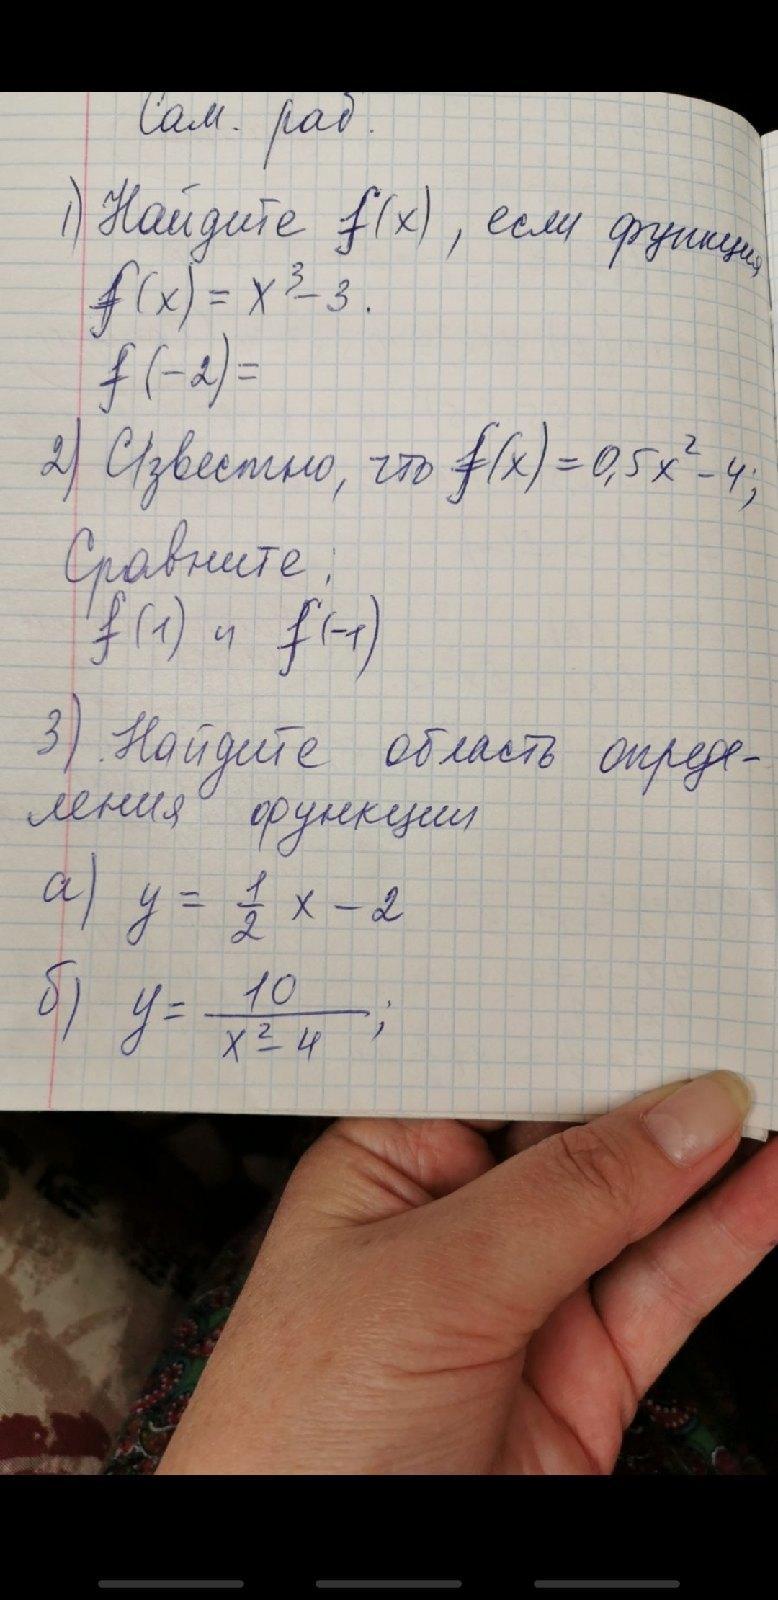 Сам. раб.
1) Найдите f(x), если функция
f(x) = x³ - 3.
f(-2) =
2) Известно, что f(x) = 0,5x² - 4;
Сравните:
f(1) и f(-1)
3) Найдите область опреде-
ления функции
а) y = 1/2 x - 2
б) y = 10/(x² - 4);